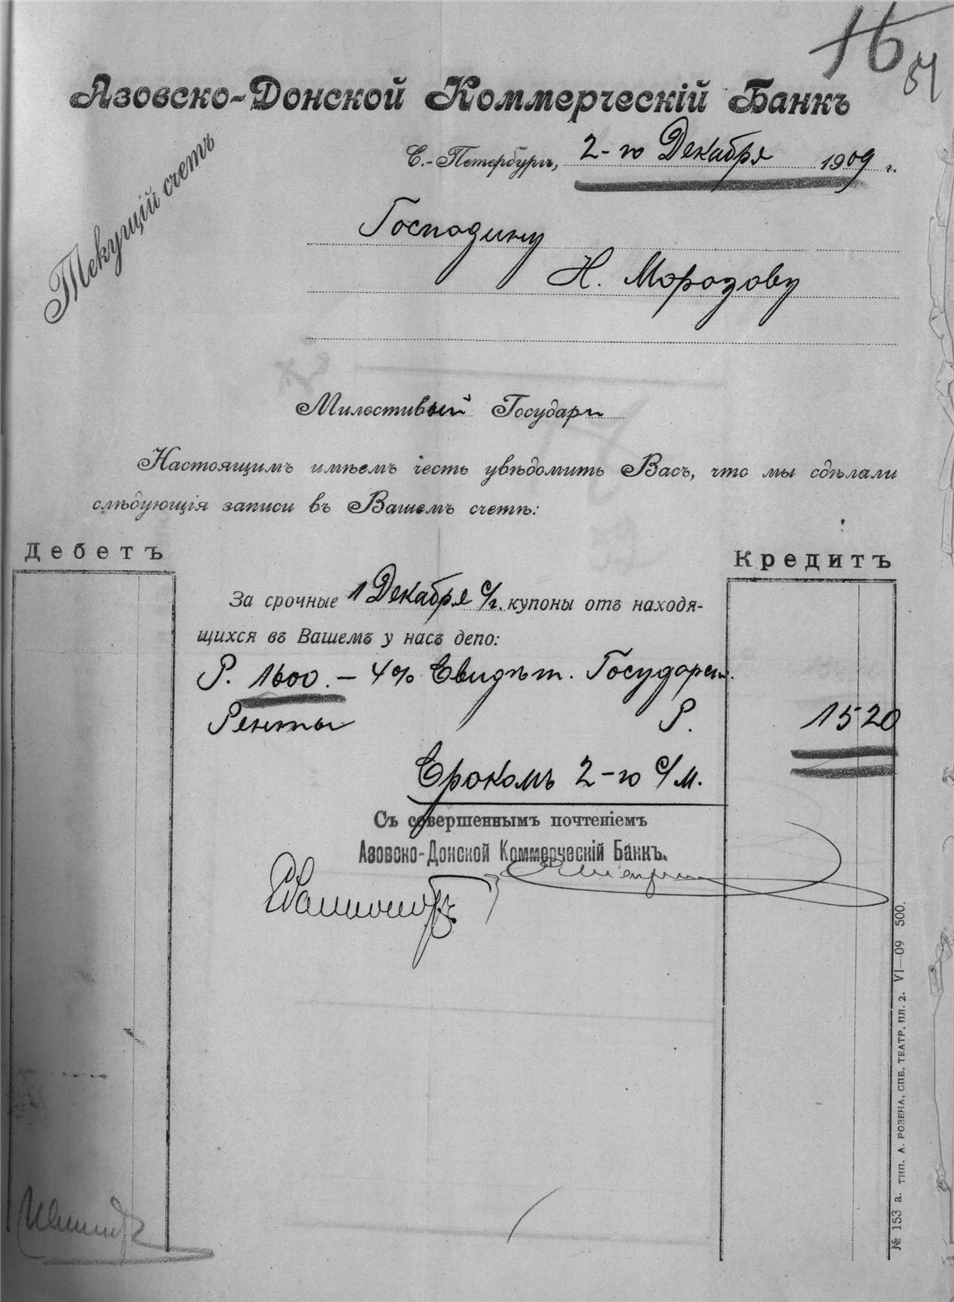 16
51
Азовско-Донской Коммерческій Банкъ
С.-Петербургъ, 2-го Декабря 1909 г.
Текущій счетъ
Господину
Н. Морозову
Милостивый Государь
Настоящимъ имѣемъ честь увѣдомить Васъ, что мы сдѣлали
слѣдующія записи въ Вашемъ счетѣ:
Дебетъ
Кредитъ
За срочные 1 Декабря с/г. купоны отъ находя-
щихся въ Вашемъ у насъ депо:
Р. 1600.- 4% Свидѣт. Государствен.
Ренты Р. 15 20
Срокомъ 2-го с/м.
Съ совершеннымъ почтеніемъ
Азовско-Донской Коммерческій Банкъ.
№ 153 а. ТИП. А. РОЗЕНА, СПБ, ТЕАТР. ПЛ. 2. VI—09 500.